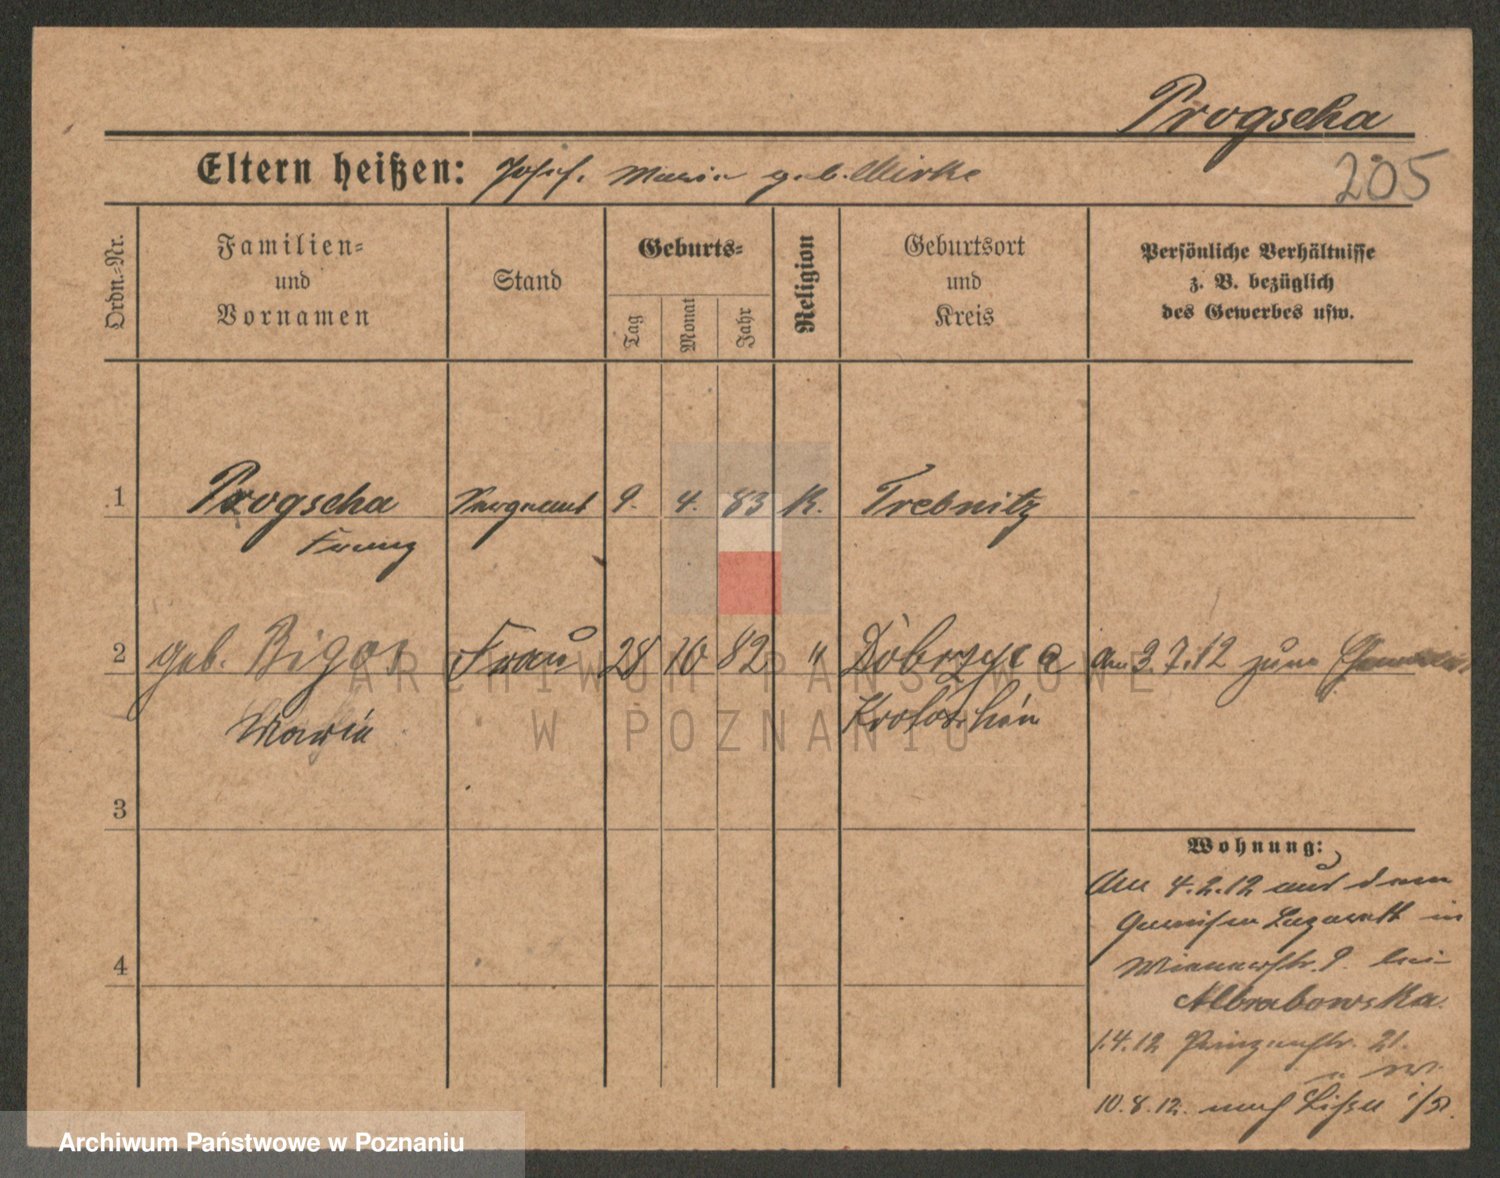 Progscha
205
Eltern heißen: Josef. Maria geb. Mirke
Ordn.-Nr.
Familien-
und
Vornamen
Stand
Geburts-
Tag
Monat
Jahr
Religion
Geburtsort
und
Kreis
Persönliche Verhältnisse
z. B. bezüglich
des Gewerbes usw.
1 Progscha Sergeant 9. 4. 83 K. Trebnitz
Franz
2 geb. Bigos Frau 28 10 82 " Dobrzyca am 3.7.12 zum
Maria Krotoschin
3
Wohnung:
Am 4.2.12 aus dem
Garnison Lazarett in
9. bei
4
1.4.12 Prinzenstr. 21.
10.8.12. nach Lissa i/P.
ARCHIWUM PAŃSTWOWE
W POZNANIU
Archiwum Państwowe w Poznaniu